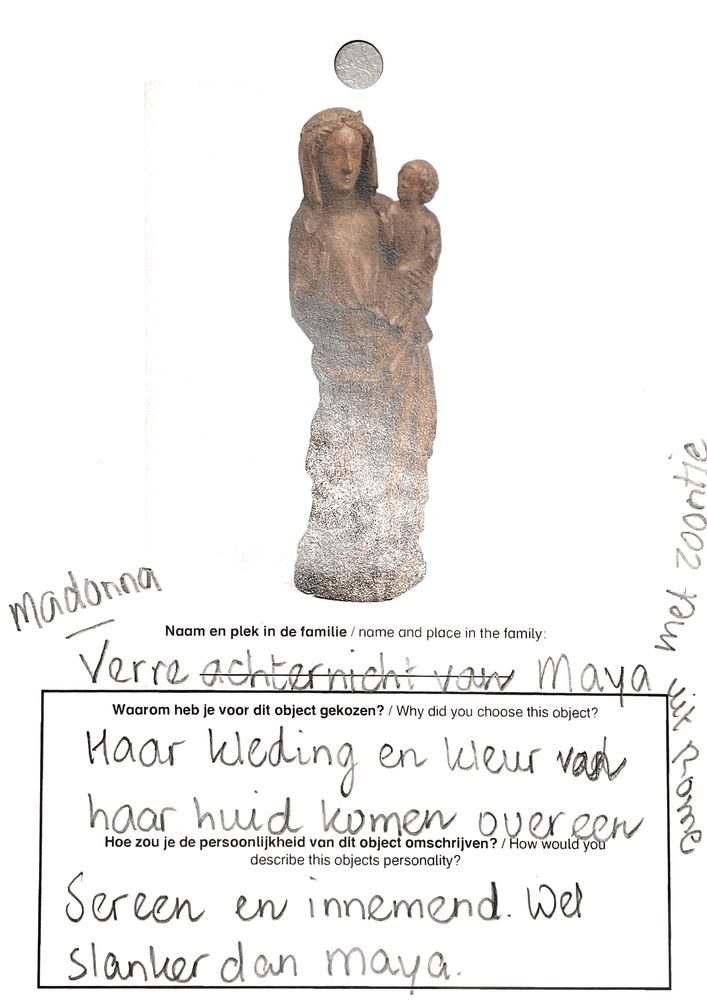 madonna
Naam en plek in de familie / name and place in the family:
Verre achternicht van Maya
uit Rome met zoontje
Waarom heb je voor dit object gekozen? / Why did you choose this object?
Haar kleding en kleur van
haar huid komen overeen
Hoe zou je de persoonlijkheid van dit object omschrijven? / How would you
describe this objects personality?
Sereen en innemend. Wel
slanker dan maya.